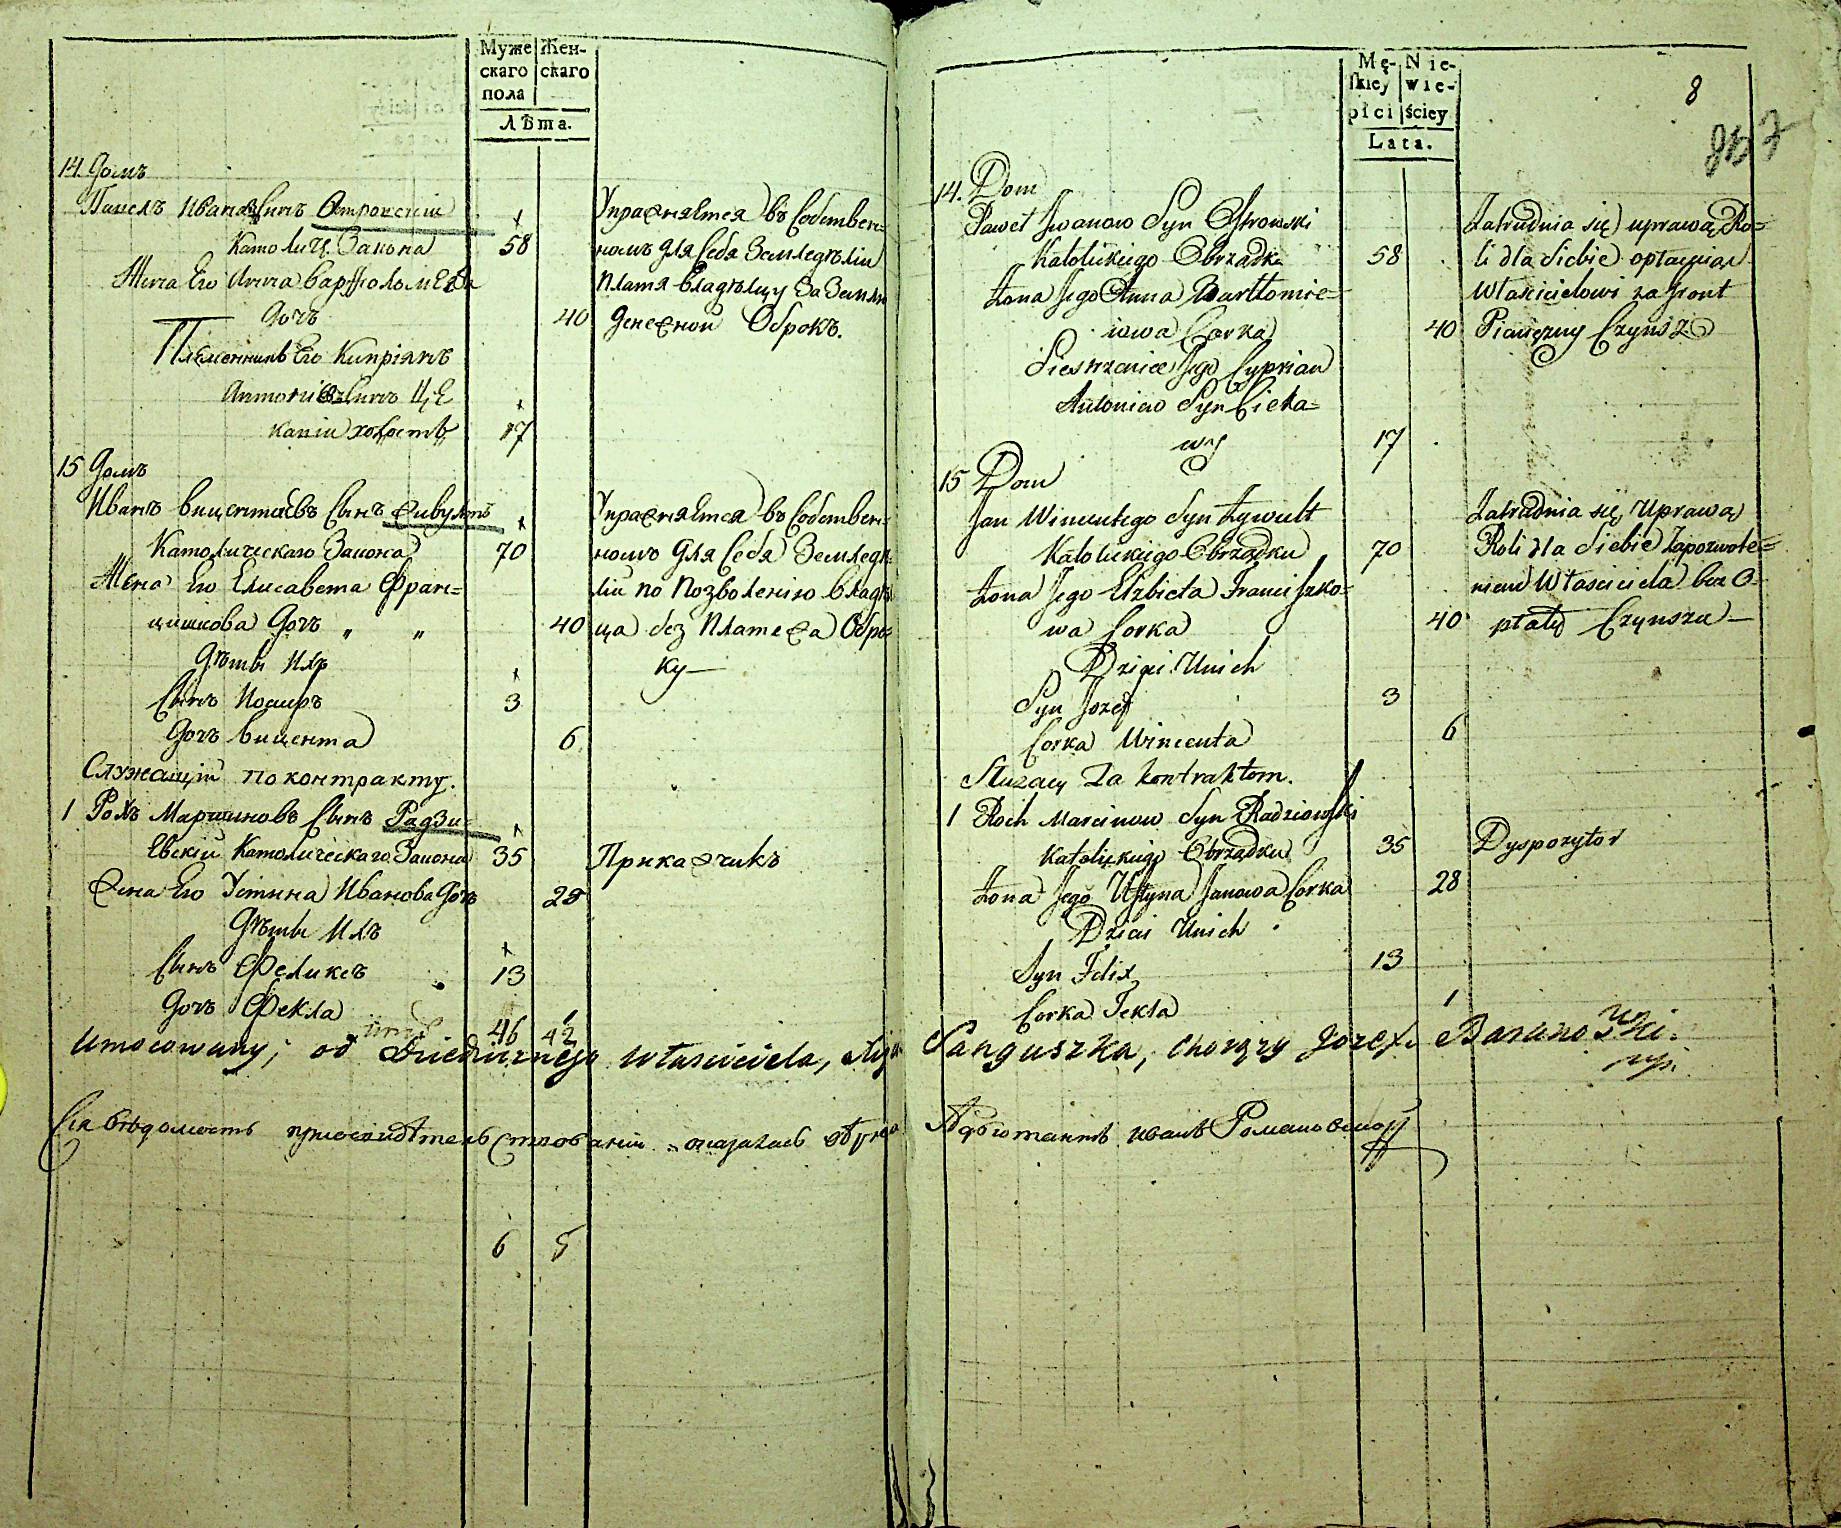 Муже Жен-
скаго скаго
пола
Лѣта.
14 Домъ
Павелъ Ивановъ Сынъ Островскій
Католич. Закона 58
Жена Его Анна Варфоломеева
Дочь 40
Племянникъ Его Кипріянъ
Антоніевъ Сынъ Це
кавій холостъ 17
Упражняется въ Собствен=
номъ для Себя Земледѣліи
Платя Владѣльцу За Землю
Денежной Оброкъ.
15 Домъ
Иванъ Вицентіевъ Сынъ Живультъ
Католическаго Закона 70
Жена Его Елисавета Фран=
цишкова Дочь „ „ 40
Дѣти Ихъ
Сынъ Иосифъ 3
Дочь Вицента 6
Упражняется въ Собствен=
номъ Для Себя Земледѣ
ліи по Позволенію Владѣль
ца без Платежа Обро=
ку—
Служащій по контракту.
1 Рохъ Марциновъ Сынъ Радзи=
евскій Католическаго Закона 35
Жена Его Устина Иванова Дочь 28
Дѣти Ихъ
Сынъ Феликсъ 13
Дочь Фекла 1
Прикажчикъ
46 42
Umocowany, od Dziedzicznego Właściciela,
Сія Вѣдомость оказалась
6 5
Mę- Nie-
skiey wie-
płci ściey
Lata.
8
14. Dom
Paweł Jwanow Syn Ostrowski
Katolickiego Obrządku 58
Żona Jego Anna Bartłomie=
iowa Corka 40
Siestrzeniec Jego Cyprian
Antoniew Syn Cieka=
wy 17
Zatrudnia się uprawą Ro=
li dla Siebie opłacaiąc
Włascicielowi za Gront
Pieniężny Czynsz
15 Dom
Jan Wincentego Syn Żywult
Katolickiego Obrządku 70
Żona Jego Elzbieta Franciszko=
wa Corka 40
Dzieci Unich
Syn Jozef 3
Corka Wincenta 6
Zatrudnia się Uprawą
Roli dla Siebie Zapozwole=
niem Własciciela bez O=
płaty Czynszu—
Służący Za kontraktem.
1 Roch Marcinow Syn Radziowski
Katolickiego Obrządku 35
Żona Jego Ustyna Janowa Corka 28
Dzieci Unich
Syn Felix 13
Corka Tekla 1
Dyspozytor
Sanguszka, Chorąży Jozef Baranowski.
mp.
Адъютантъ Иванъ Романовскій